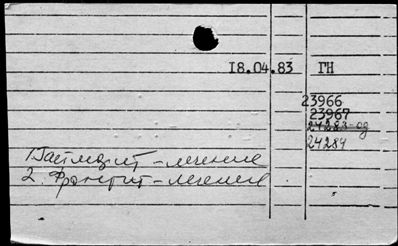 18.04.83 ГН
23966
23967
24283-од
24284
1) Гайморит - лечение
2. Фронтит - лечение